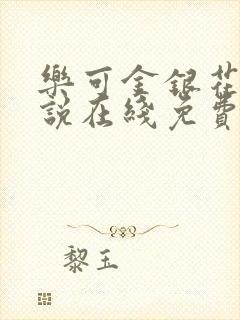 樂可金銀花
說在綫免費
黎玉